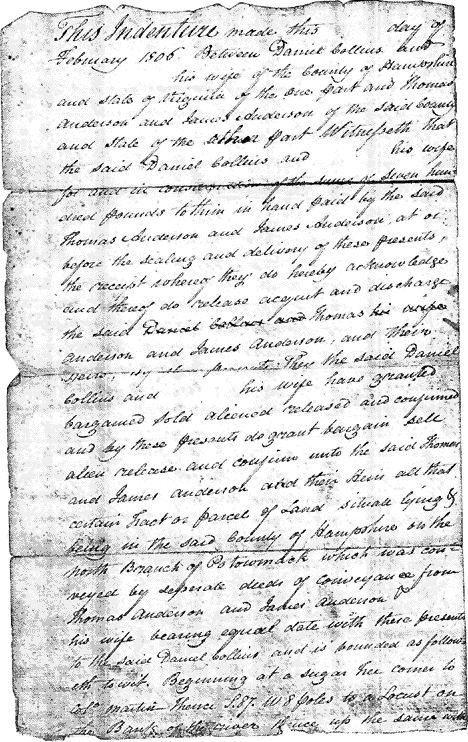 This Indenture made this day of
February 1806 Between Daniel Collins and
his wife of the County of Hampshire
and state of Virginia of the one part and Thomas
Anderson and James Anderson of the said County
and state of the other part Witnesseth that
the said Daniel Collins and his wife
for and in consideration of the sum of seven hun
dred pounds to them in hand paid by the said
Thomas Anderson and James Anderson, at or
before the sealing and delivery of these presents,
the receipt whereof they do hereby acknowledge
and thereof do release acquit and discharge
the said Daniel Collins and Thomas his wife
Anderson and James Anderson, and their
Heirs, by these presents: They the said Daniel
Collins and his wife have granted
bargained sold aliened released and confirmed
and by these presents do grant bargain sell
alien release and confirm unto the said Thomas
and James Anderson and their Heirs all that
certain Tract or Parcel of Land situate lying &
being in the said County of Hampshire on the
North Branch of Potowmack which was con-
veyed by seperate deeds of conveyance from
Thomas Anderson and James Anderson &
his wife bearing equal date with these presents
to the said Daniel Collins and is bounded as follow-
eth to wit. Beginning at a sugar tree corner to
Martin thence S. 87. W. 8 poles to a Locust on
the Bank of the river thence up the same with